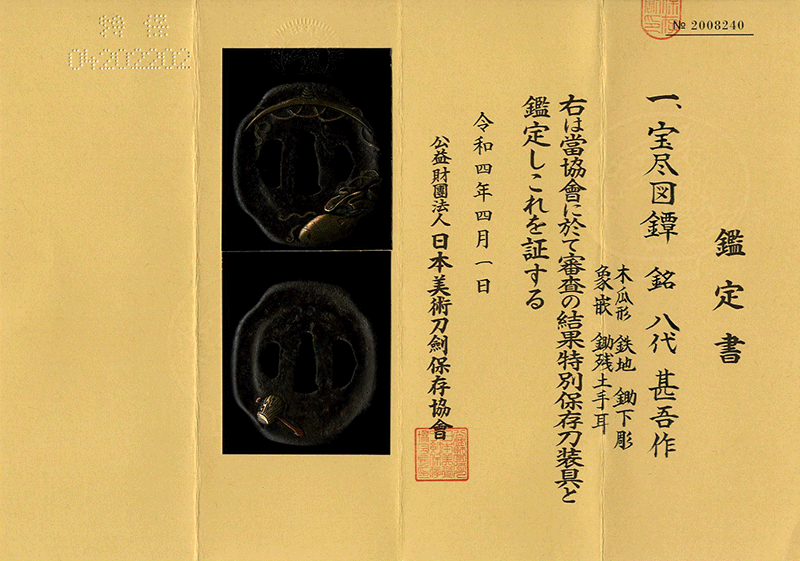 № 2008240
鑑定書
一、宝尽図鐔 銘 八代 甚吾作
木瓜形 鉄地 鋤下彫
象嵌 鋤残土手耳
右は當協會に於て審査の結果特別保存刀装具と
鑑定しこれを証する
令和四年四月一日
公益財團法人 日本美術刀劍保存協會
特保
04202202